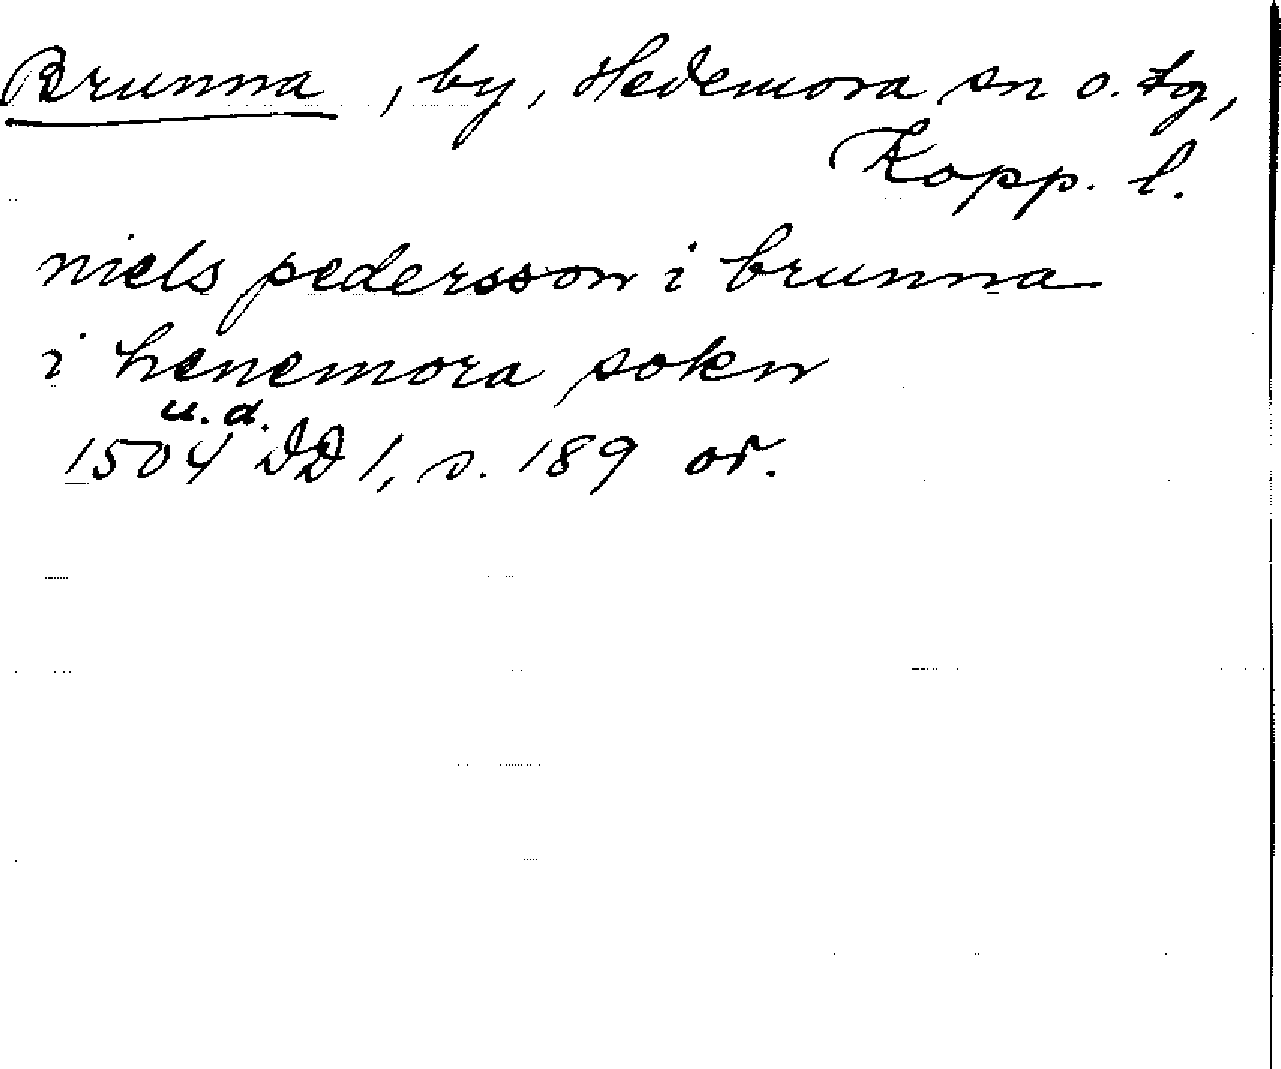 Brunna, by, Hedemora sn o. tg,
Kopp. l.
niels pedersson i brunna
i henemora sokn
u. d.
1504 DD 1, s. 189 or.